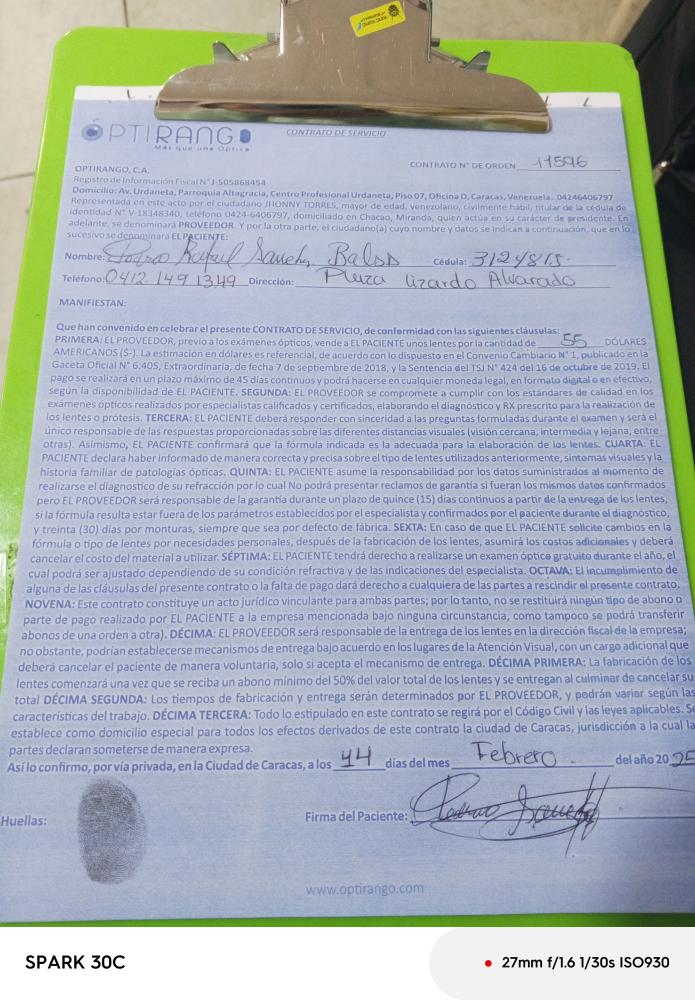 OPTIRANGO
Más que una Óptica
CONTRATO DE SERVICIO
CONTRATO N° DE ORDEN 11596
OPTIRANGO, C.A.
Registro de Información Fiscal N° J-505868454
Domicilio: Av. Urdaneta, Parroquia Altagracia, Centro Profesional Urdaneta, Piso 07, Oficina D, Caracas, Venezuela. 04246406797
Representada en este acto por el ciudadano JHONNY TORRES, mayor de edad, venezolano, civilmente hábil, titular de la cédula de
identidad N° V-18348340, teléfono 0424-6406797, domiciliado en Chacao, Miranda, quien actúa en su carácter de presidente. En
adelante, se denominará PROVEEDOR. Y por la otra parte, el ciudadano(a) cuyo nombre y datos se indican a continuación, que en lo
sucesivo se denominará EL PACIENTE:
Nombre: Pedro Rafael Sanchez Cédula: 3124815.
Teléfono: 0412 149 1349 Dirección: Plaza Lizardo Alvarado
MANIFIESTAN:
Que han convenido en celebrar el presente CONTRATO DE SERVICIO, de conformidad con las siguientes cláusulas:
PRIMERA: EL PROVEEDOR, previo a los exámenes ópticos, vende a EL PACIENTE unos lentes por la cantidad de 55 DÓLARES
AMERICANOS ($-). La estimación en dólares es referencial, de acuerdo con lo dispuesto en el Convenio Cambiario N° 1, publicado en la
Gaceta Oficial N° 6.405, Extraordinaria, de fecha 7 de septiembre de 2018, y la Sentencia del TSJ N° 424 del 16 de octubre de 2019. El
pago se realizará en un plazo máximo de 45 días continuos y podrá hacerse en cualquier moneda legal, en formato digital o en efectivo,
según la disponibilidad de EL PACIENTE. SEGUNDA: EL PROVEEDOR se compromete a cumplir con los estándares de calidad en los
exámenes ópticos realizados por especialistas calificados y certificados, elaborando el diagnóstico y RX prescrito para la realización de
los lentes o prótesis. TERCERA: EL PACIENTE deberá responder con sinceridad a las preguntas formuladas durante el examen y será el
único responsable de las respuestas proporcionadas sobre las diferentes distancias visuales (visión cercana, intermedia y lejana, entre
otras). Asimismo, EL PACIENTE confirmará que la fórmula indicada es la adecuada para la elaboración de los lentes. CUARTA: EL
PACIENTE declara haber informado de manera correcta y precisa sobre el tipo de lentes utilizados anteriormente, síntomas visuales y la
historia familiar de patologías ópticas. QUINTA: EL PACIENTE asume la responsabilidad por los datos suministrados al momento de
realizarse el diagnostico de su refracción por lo cual No podrá presentar reclamos de garantía si fueran los mismos datos confirmados
pero EL PROVEEDOR será responsable de la garantía durante un plazo de quince (15) días continuos a partir de la entrega de los lentes,
si la fórmula resulta estar fuera de los parámetros establecidos por el especialista y confirmados por el paciente durante el diagnóstico,
y treinta (30) días por monturas, siempre que sea por defecto de fábrica. SEXTA: En caso de que EL PACIENTE solicite cambios en la
fórmula o tipo de lentes por necesidades personales, después de la fabricación de los lentes, asumirá los costos adicionales y deberá
cancelar el costo del material a utilizar. SÉPTIMA: EL PACIENTE tendrá derecho a realizarse un examen óptico gratuito durante el año, el
cual podrá ser ajustado dependiendo de su condición refractiva y de las indicaciones del especialista. OCTAVA: El incumplimiento de
alguna de las cláusulas del presente contrato o la falta de pago dará derecho a cualquiera de las partes a rescindir el presente contrato.
NOVENA: Este contrato constituye un acto jurídico vinculante para ambas partes; por lo tanto, no se restituirá ningún tipo de abono o
parte de pago realizado por EL PACIENTE a la empresa mencionada bajo ninguna circunstancia, como tampoco se podrá transferir
abonos de una orden a otra). DÉCIMA: EL PROVEEDOR será responsable de la entrega de los lentes en la dirección fiscal de la empresa;
no obstante, podrían establecerse mecanismos de entrega bajo acuerdo en los lugares de la Atención Visual, con un cargo adicional que
deberá cancelar el paciente de manera voluntaria, solo si acepta el mecanismo de entrega. DÉCIMA PRIMERA: La fabricación de los
lentes comenzará una vez que se reciba un abono mínimo del 50% del valor total de los lentes y se entregan al culminar de cancelar su
total DÉCIMA SEGUNDA: Los tiempos de fabricación y entrega serán determinados por EL PROVEEDOR, y podrán variar según las
características del trabajo. DÉCIMA TERCERA: Todo lo estipulado en este contrato se regirá por el Código Civil y las leyes aplicables. Se
establece como domicilio especial para todos los efectos derivados de este contrato la ciudad de Caracas, jurisdicción a la cual la
partes declaran someterse de manera expresa.
Así lo confirmo, por vía privada, en la Ciudad de Caracas, a los 14 días del mes Febrero. del año 2025
Huellas:
Firma del Paciente: Pedro Sanchez
www.optirango.com
SPARK 30C
27mm f/1.6 1/30s ISO930